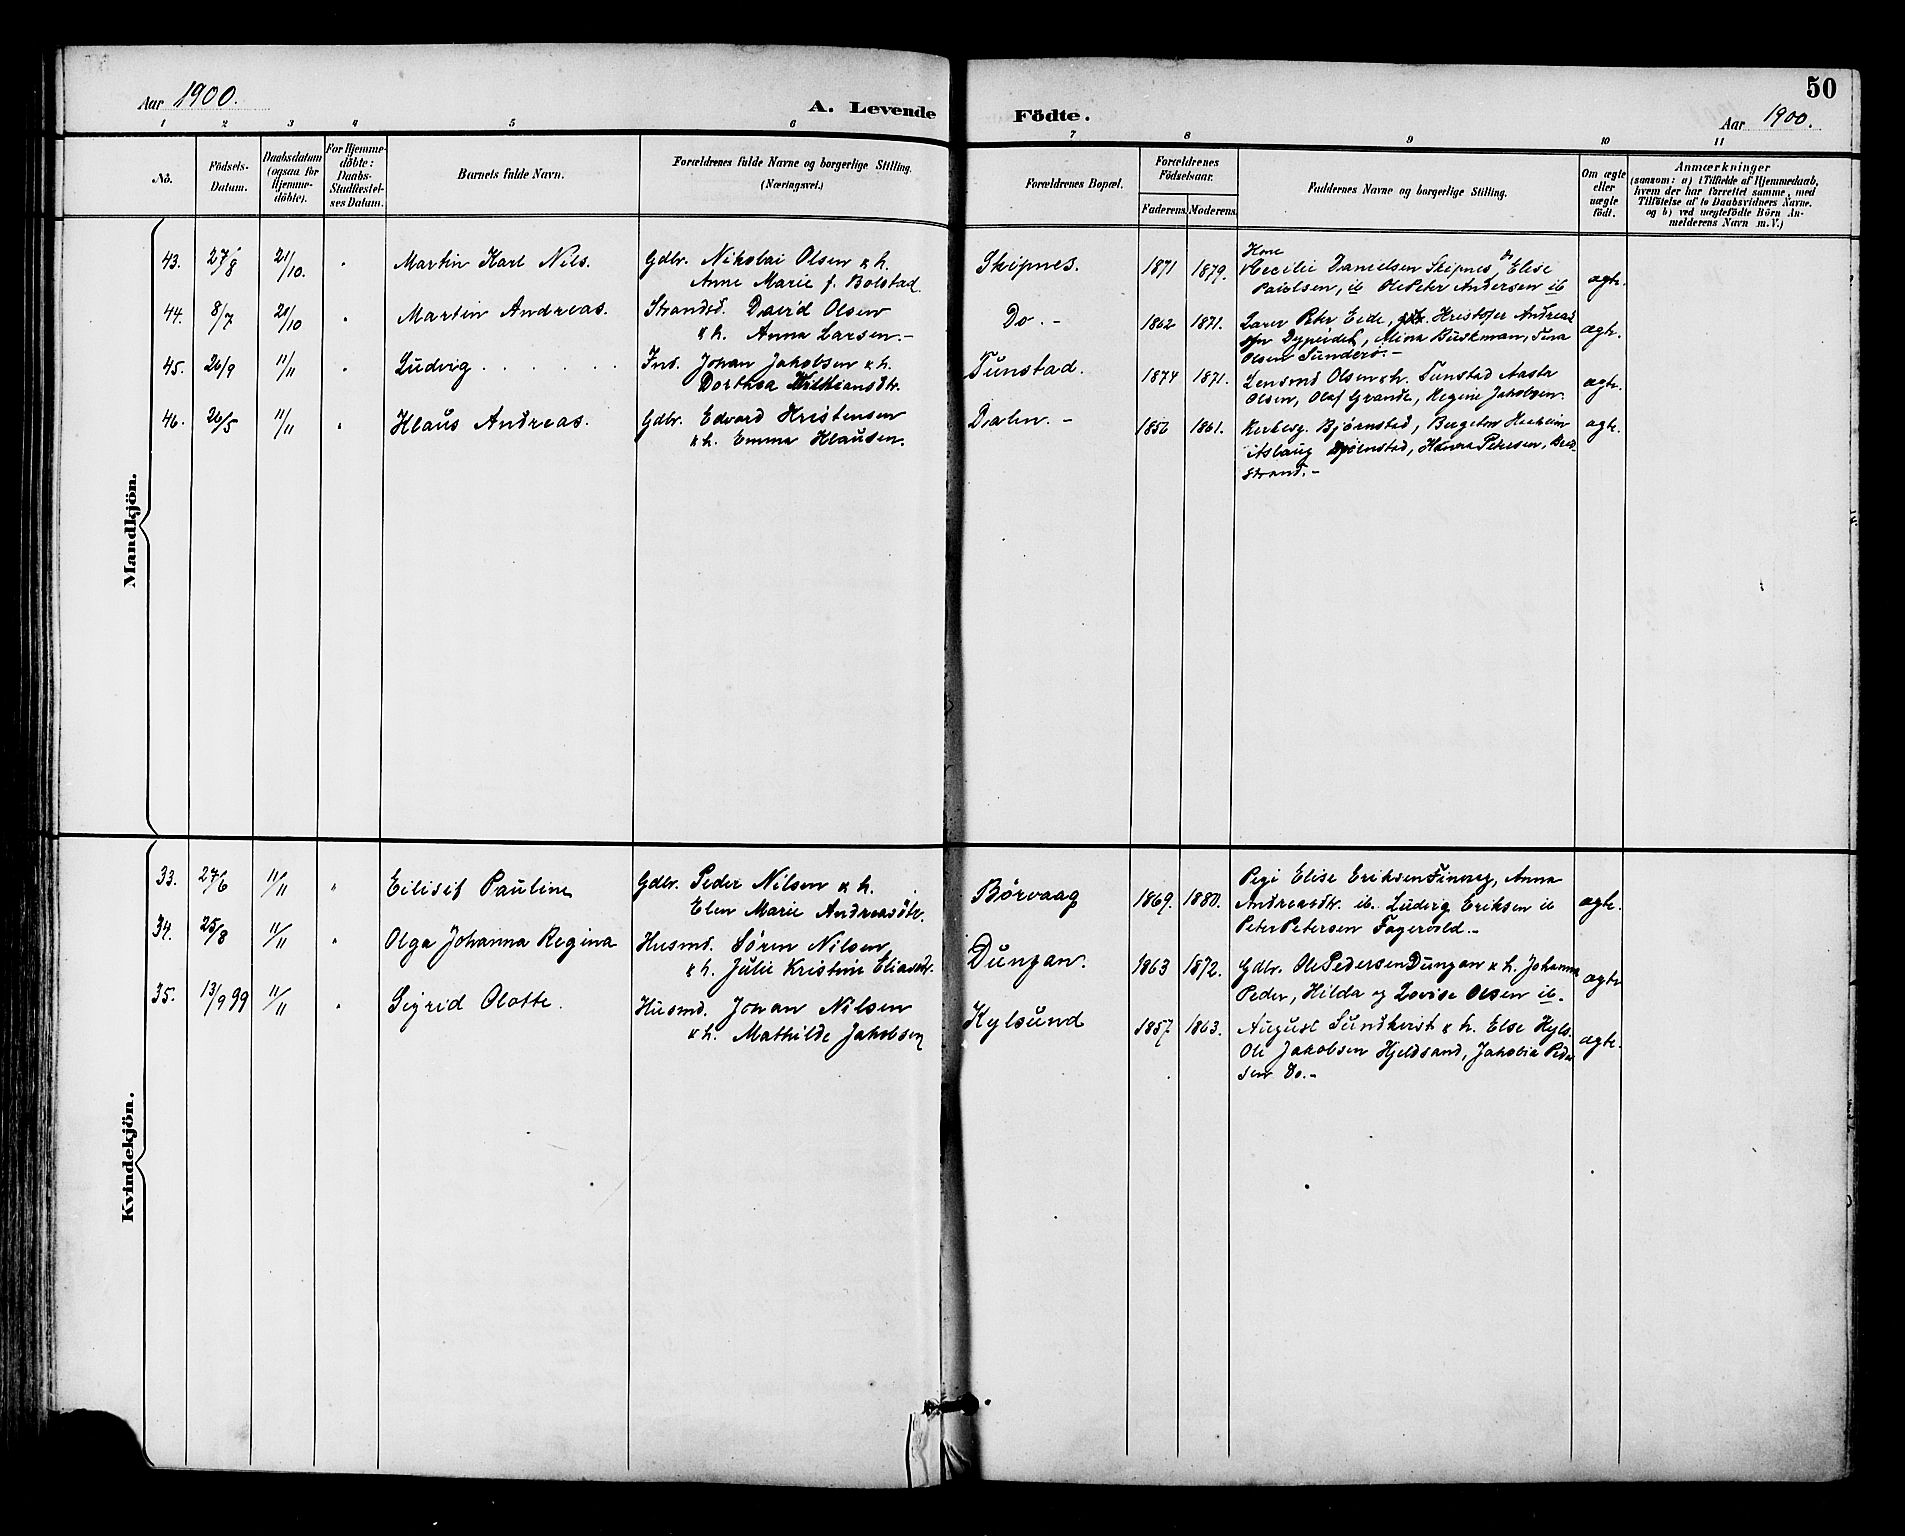 50
Aar 1900.
A. Levende Födte.
Aar 1900.
1 2 3 4 5 6 7 8 9 10 11
No.
Födsels-
Datum.
Daabsdatum
(ogsaa for
Hjemme-
döbte).
For Hjemme-
döbte:
Daabs-
Stadfæstel-
ses Datum.
Barnets fulde Navn.
Forældrenes fulde Navne og borgerlige Stilling.
(Næringsvei.)
Forældrenes Bopæl.
Forældrenes
Födselsaar.
Faderens. Moderens.
Faddernes Navne og borgerlig Stilling.
Om ægte
eller
uægte
födt.
Anmærkninger
(saasom: a) i Tilfælde af Hjemmedaab,
hvem der har forrettet samme, med
Tilföielse af to Daabsvidners Navne.
og b) ved uægtefödte Börn An-
melderens Navn m. V.)
Mandkjön.
43. 27/8 21/10. " Martin Karl Nils. Gdbr. Nikolai Olsen & h.
Anne Marie f. Bolstad.
Skipnes. 1871 1879.
Kone
Cecilie Danielsen Skipnes, Elise
Paulsen, ib Ole Peter Andersen ib
ægte.
44. 8/7 21/10 " Martin Andreas. Strands. David Olsen
& h. Anna Larsen.-
Do. - 1862 1871.
Eide, Kristofer Andreas
Mina Buskman, Tina
Olsen Sunderö.-
ægte.
45. 26/9 11/11 " Ludvig . . . . . . Ind. Johan Jakobsen & h.
Dorthea
Tunstad. 1874 1871.
Lensmd Olsen & h. Tunstad Aasta
Olsen, Olaf Grande, Regine Jakobsen.
ægte.
46. 26/5 11/11 " Klaus Andreas. Gdbr. Edvard Kristensen
& h. Emma Klausen.
Dalen. - 1856 1861.
Kirkesg. Bjørnstad, Bergetor
Aslaug Bjørnstad, Hanna Petersen,
strand.-
ægte.
Kvindekjön.
33. 27/6 11/11 " Eilisif Pauline Gdbr. Peder Nilsen & h.
Elen Marie Andreasdtr.
Börvaag 1869. 1880.
Pige Elise Eriksen Finvag, Anna
Andreasdtr. ib. Ludvig Eriksen ib
Peter Petersen Fagervold.-
ægte.
34. 25/8 11/11 " Olga Johanna Regina Husmd. Søren Nilsen
& h. Julie Kristine Eliasdtr.
Dungan. 1863 1872.
Gdbr. Ole Pedersen Dungan & h. Johanna
Peder, Hilda og Lovise Olsen ib.
ægte
35. 13/9 99 11/11 " Sigrid Olotte. Husmd. Johan Nilsen
& h. Mathilde Jakobsen
Kylsund 1857 1863.
August Sundkvist & h. Else Kyls.
Ole Jakobsen Hjeldsand, Jakobia Peder
sen Do.-
ægte.